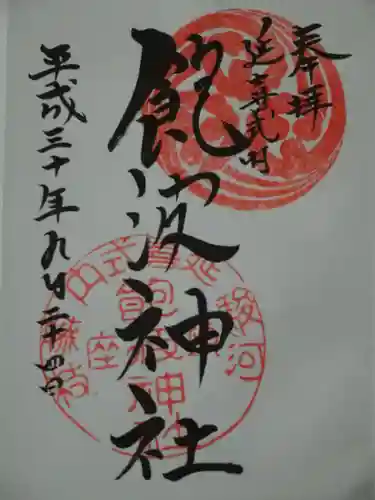 奉拝
延喜式内
飽波神社
平成三十年九月二十四日
駿河
延喜式内
飽波神社
座